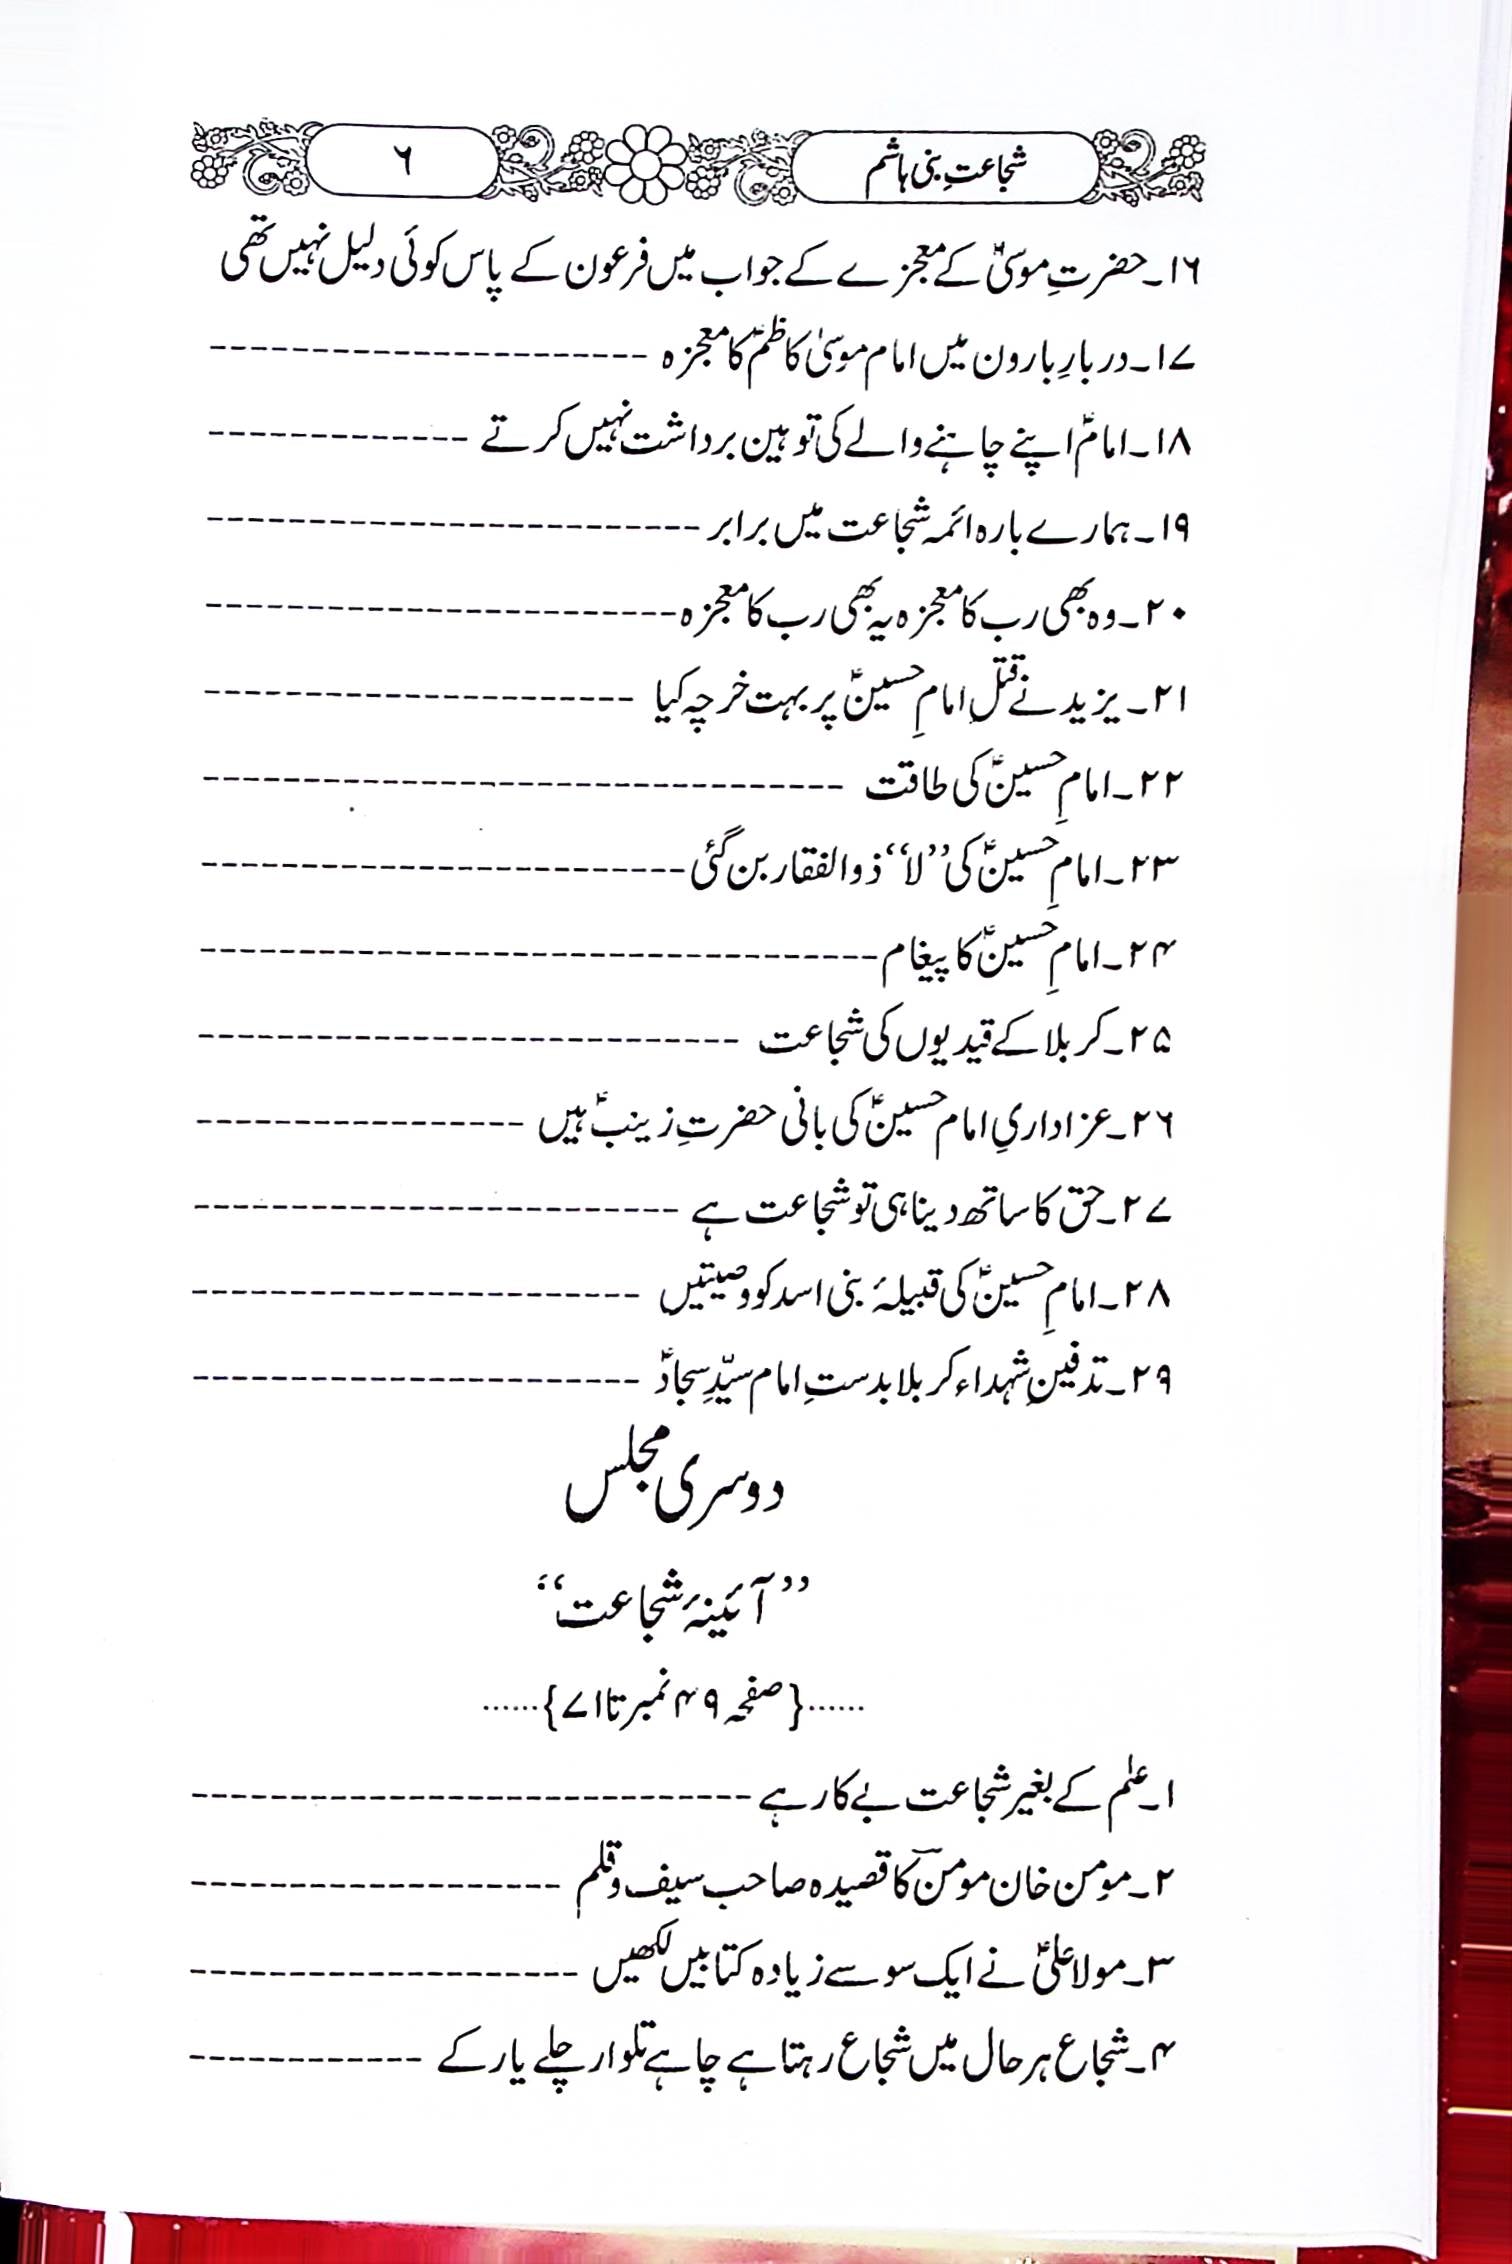 شجاعتِ بنی ہاشم
۶
۱۶۔ حضرتِ موسیٰؑ کے معجزے کے جواب میں فرعون کے پاس کوئی دلیل نہیں تھی
۱۷۔ دربارِ ہارون میں امام موسیٰ کاظمؑ کا معجزہ ----------------------
۱۸۔ امامؑ اپنے چاہنے والے کی توہین برداشت نہیں کرتے -------------
۱۹۔ ہمارے بارہ ائمہ شجاعت میں برابر -------------------------
۲۰۔ وہ بھی رب کا معجزہ یہ بھی رب کا معجزہ ------------------------
۲۱۔ یزید نے قتلِ امامِ حسینؑ پر بہت خرچہ کیا ----------------------
۲۲۔ امامِ حسینؑ کی طاقت --------------------------------
۲۳۔ امامِ حسینؑ کی ”لا“ ذوالفقار بن گئی ------------------------
۲۴۔ امامِ حسینؑ کا پیغام ----------------------------------
۲۵۔ کربلا کے قیدیوں کی شجاعت ---------------------------
۲۶۔ عزاداریِ امام حسینؑ کی بانی حضرتِ زینبؑ ہیں -----------------
۲۷۔ حق کا ساتھ دینا ہی تو شجاعت ہے -------------------------
۲۸۔ امامِ حسینؑ کی قبیلۂ بنی اسد کو وصیتیں -----------------------
۲۹۔ تدفینِ شہداء کربلا بدستِ امام سیّدِ سجادؑ -----------------------
دوسری مجلس
”آئینۂ شجاعت“
......{صفحہ ۴۹ نمبر تا ۷۱}......
۱۔ علم کے بغیر شجاعت بے کار ہے ----------------------------
۲۔ مومن خان مومنؔ کا قصیدہ صاحب سیف و قلم -------------------
۳۔ مولا علیؑ نے ایک سو سے زیادہ کتابیں لکھیں --------------------
۴۔ شجاع ہر حال میں شجاع رہتا ہے چاہے تلوار چلے یا رکے ------------